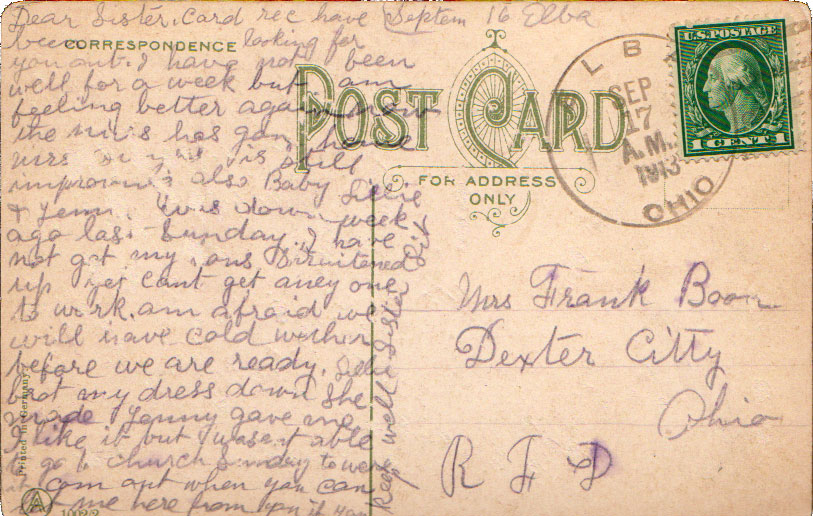 Dear Sister. Card rec have Septem 16 Elba
been looking for
CORRESPONDENCE
you out. I have not been
well for a week but am
feeling better again now
the has gon home
mrs is still
improving also Baby Lillie
& Jenn. was down week
ago last Sunday. I have
not got my
up yet cant get aney one
to work. am afraid we
will have cold wether
before we are ready.
brot my dress down she
made Jenny gave me
I like it but I wasent able
to go to church Sunday to were
it com out when you can
me here from you if you
keep well Sister
POST CARD
FOR ADDRESS
ONLY
ELBA
SEP
17
A.M.
1913
OHIO
U.S. POSTAGE
1 CENTS 1
Mrs Frank Boon
Dexter Citty
Ohio
R F D
Printed in Germany
A
1002/2